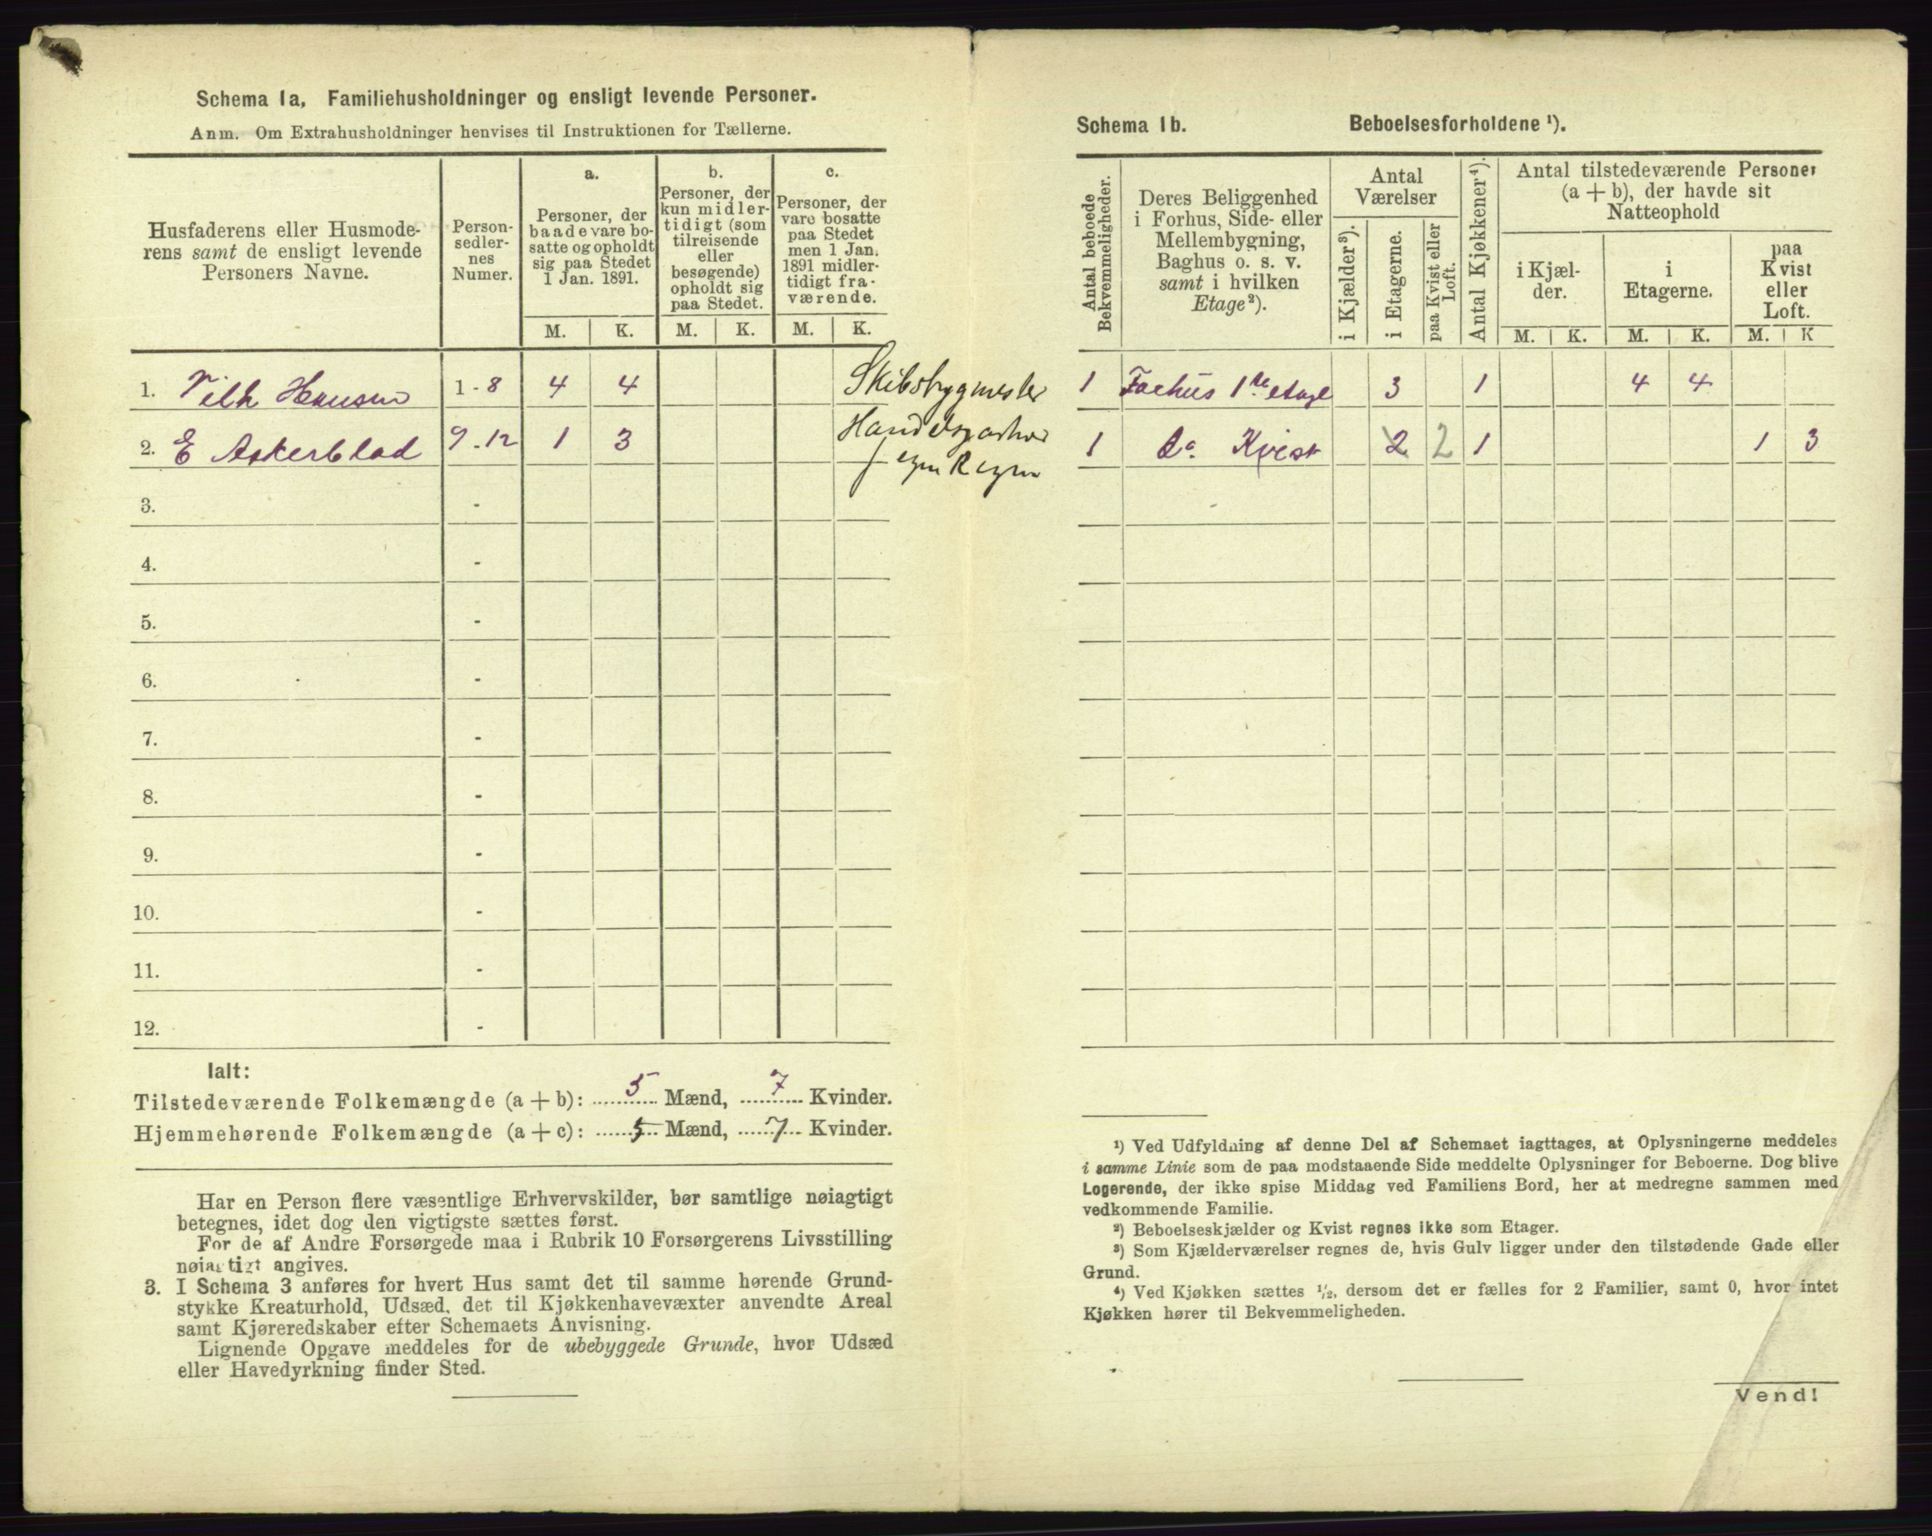 Schema 1a, Familiehusholdninger og ensligt levende Personer.
Anm. Om Extrahusholdninger henvises til Instruktionen for Tællerne.
Husfaderens eller Husmode-
rens samt de ensligt levende
Personers Navne.
Person-
sedler-
nes
Numer.
a.
Personer, der
baade vare bo-
satte og opholdt
sig paa Stedet
1 Jan. 1891.
b.
Personer, der
kun midler-
tidigt (som
tilreisende
eller
besøgende)
opholdt sig
paa Stedet.
c.
Personer, der
vare bosatte
paa Stedet
men 1 Jan.
1891 midler-
tidigt fra-
værende.
M. K. M. K. M. K.
1. Vilh Hansen 1-8 4 4 Skibsbygmester
2. E Askerblad 9-12 1 3
f egen Regn
3. -
4. -
5. -
6. -
7. -
8. -
9. -
10. -
11. -
12. -
Ialt:
Tilstedeværende Folkemængde (a+b): 5 Mænd, 7 Kvinder.
Hjemmehørende Folkemængde (a+c): 5 Mænd, 7 Kvinder.
Har en Person flere væsentlige Erhvervskilder, bør samtlige nøiagtigt
betegnes, idet dog den vigtigste sættes først.
For de af Andre Forsørgede maa i Rubrik 10 Forsørgerens Livsstilling
nøiagtigt angives.
3. I Schema 3 anføres for hvert Hus samt det til samme hørende Grund-
stykke Kreaturhold, Udsæd, det til Kjøkkenhavevæxter anvendte Areal
samt Kjøreredskaber efter Schemaets Anvisning.
Lignende Opgave meddeles for de ubebyggede Grunde, hvor Udsæd
eller Havedyrkning finder Sted.
Schema 1b. Beboelsesforholdene ¹).
Antal beboede
Bekvemmeligheder.
Deres Beliggenhed
i Forhus, Side- eller
Mellembygning,
Baghus o. s. v.
samt i hvilken
Etage²).
Antal
Værelser
i Kjælder³).
i Etagerne.
paa Kvist eller
Loft.
Antal Kjøkkener⁴).
Antal tilstedeværende Personer
(a + b), der havde sit
Natteophold
i Kjæl-
der.
i
Etagerne.
paa
Kvist
eller
Loft.
M. K. M. K. M. K
1 Forhus 1ste etage 3 1 4 4
1 do. Kvist 2 2 1 1 3
¹) Ved Udfyldning af denne Del af Schemaet iagttages, at Oplysningerne meddeles
i samme Linie som de paa modstaaende Side meddelte Oplysninger for Beboerne. Dog blive
Logerende, der ikke spise Middag ved Familiens Bord, her at medregne sammen med
vedkommende Familie.
²) Beboelseskjælder og Kvist regnes ikke som Etager.
³) Som Kjælderværelser regnes de, hvis Gulv ligger under den tilstødende Gade eller
Grund.
⁴) Ved Kjøkken sættes ½, dersom det er fælles for 2 Familier, samt 0, hvor intet
Kjøkken hører til Bekvemmeligheden.
Vend!